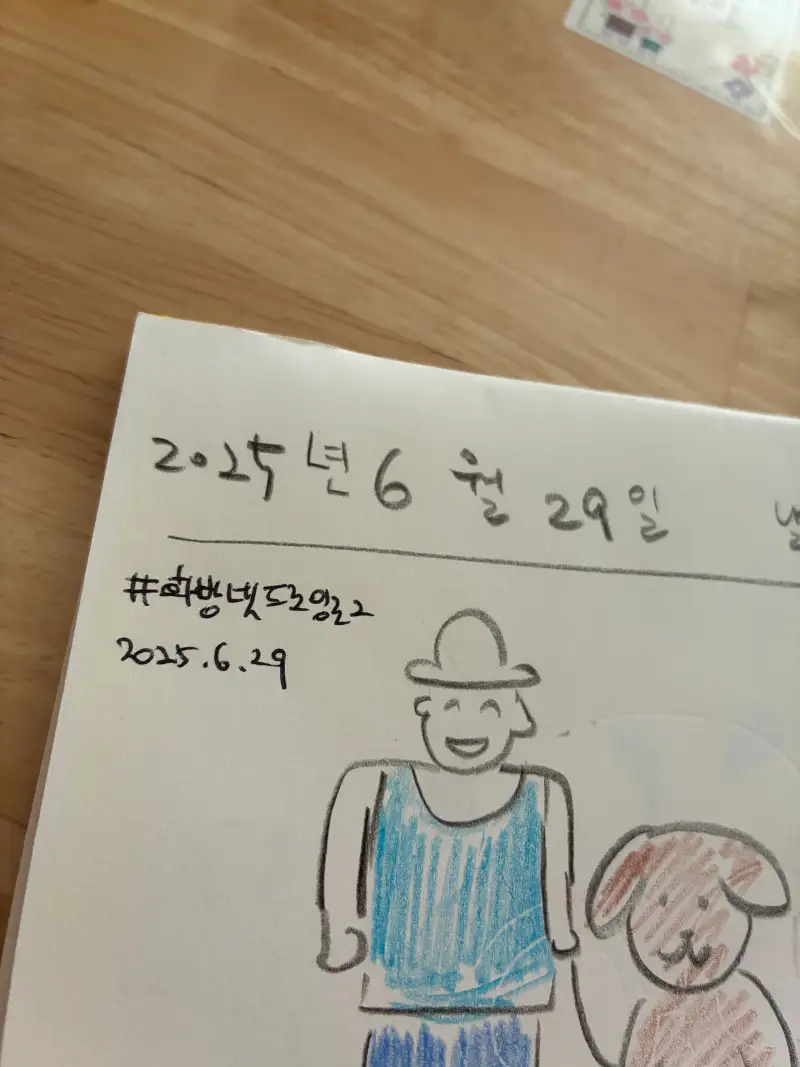 2025년 6월 29일
#화방넷드로잉로그
2025.6.29